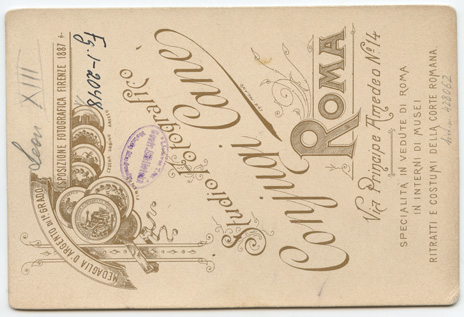 Leon XIII
Fg.1-2048
ESPOSIZIONE FOTOGRAFICA FIRENZE 1887
MEDAGLIA D'ARGENTO DI 1º GRADO
Studio Fotografico
Coniugi Cane
ROMA
Via Principe Amedeo Nº 14
SPECIALITÀ IN VEDUTE DI ROMA
IN INTERNI DI MUSEI
RITRATTI E COSTUMI DELLA CORTE ROMANA